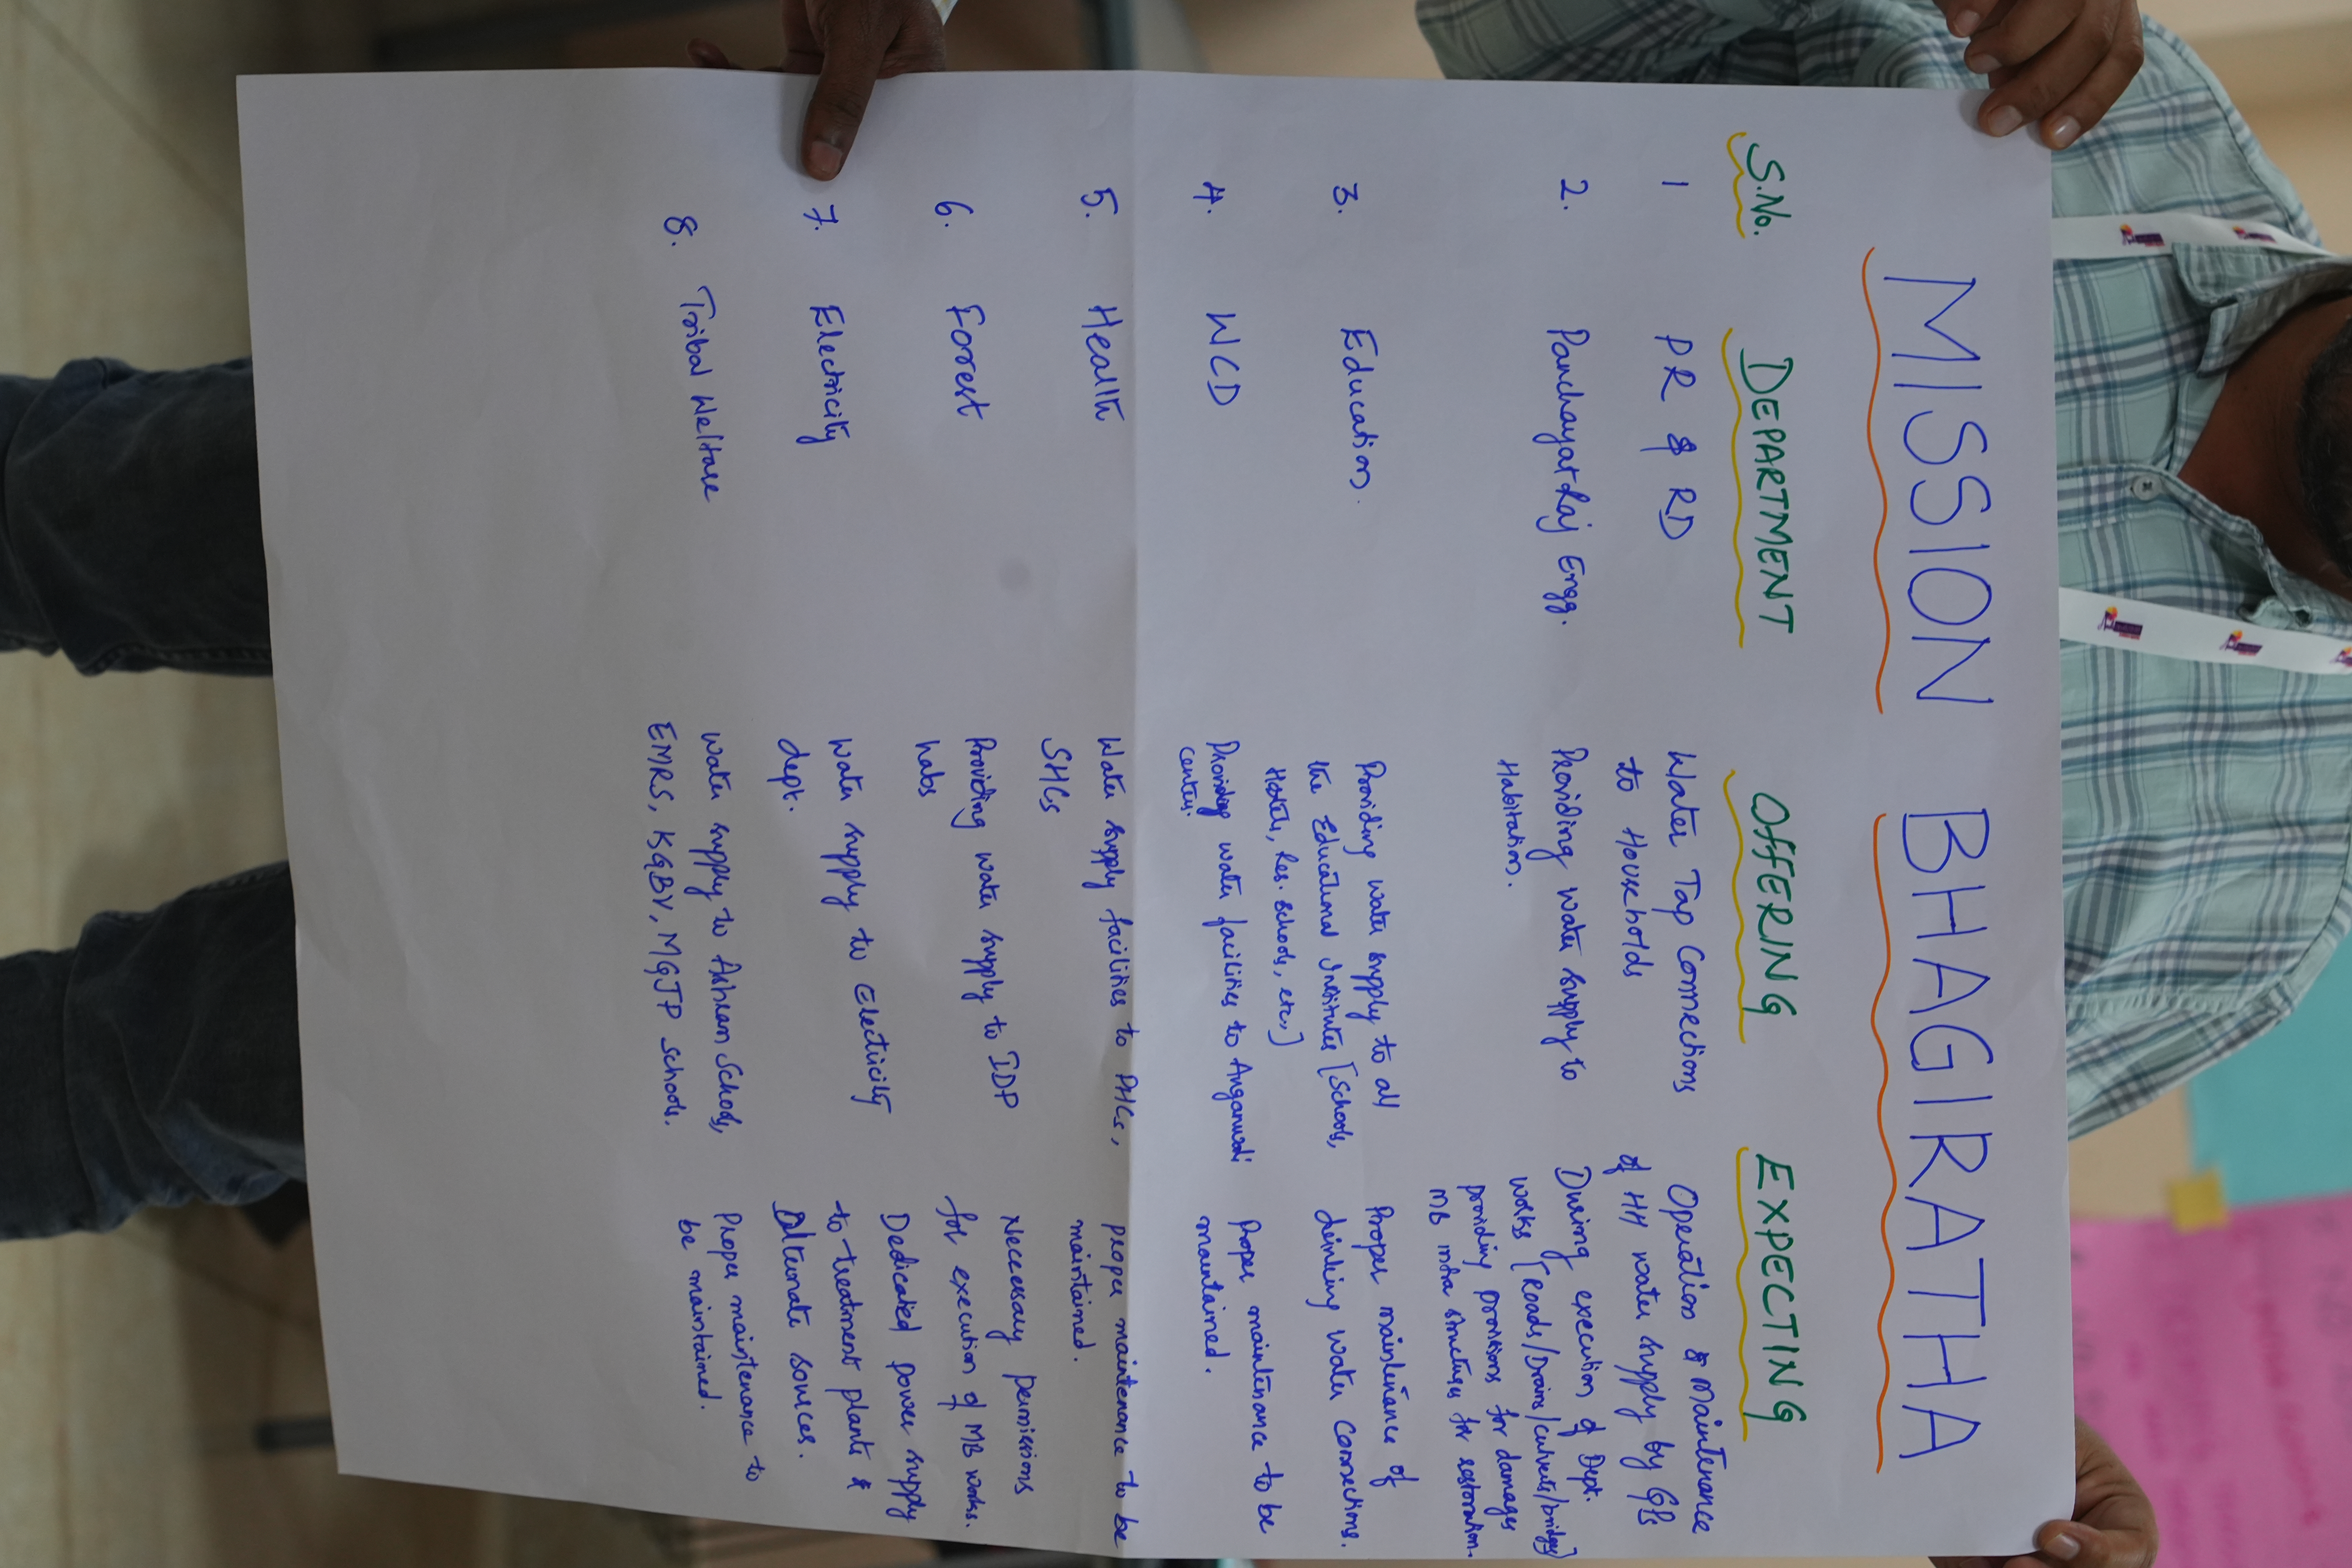 MISSION BHAGIRATHA
S.No. DEPARTMENT OFFERING EXPECTING
1 PR & RD Water Tap Connections Operation & Maintenance
to Households of HH water supply by GPs
2. Panchayat Raj Engg. Providing water supply to During execution of Dept.
Habitation. works [Roads/Drains/culverts/bridges]
providing provisions for damages
MB infra structures for restoration.
3. Education. Providing water supply to all Proper maintenance of
the Educational Institutes [Schools, drinking water connections.
Hostels, Res. schools, etc.,]
4. WCD Providing water facilities to Anganwadi Proper maintenance to be
centers. maintained.
5. Health Water supply facilities to PHCs, proper maintenance to be
SHCs maintained.
6. Forest Providing water supply to IDP Necessary permissions
habs for execution of MB works.
7. Electricity Water supply to Electricity Dedicated power supply
dept. to treatment plants &
Alternate sources.
8. Tribal Welfare Water supply to Ashram Schools, Proper maintenance to
EMRS, KGBV, MGJP schools. be maintained.